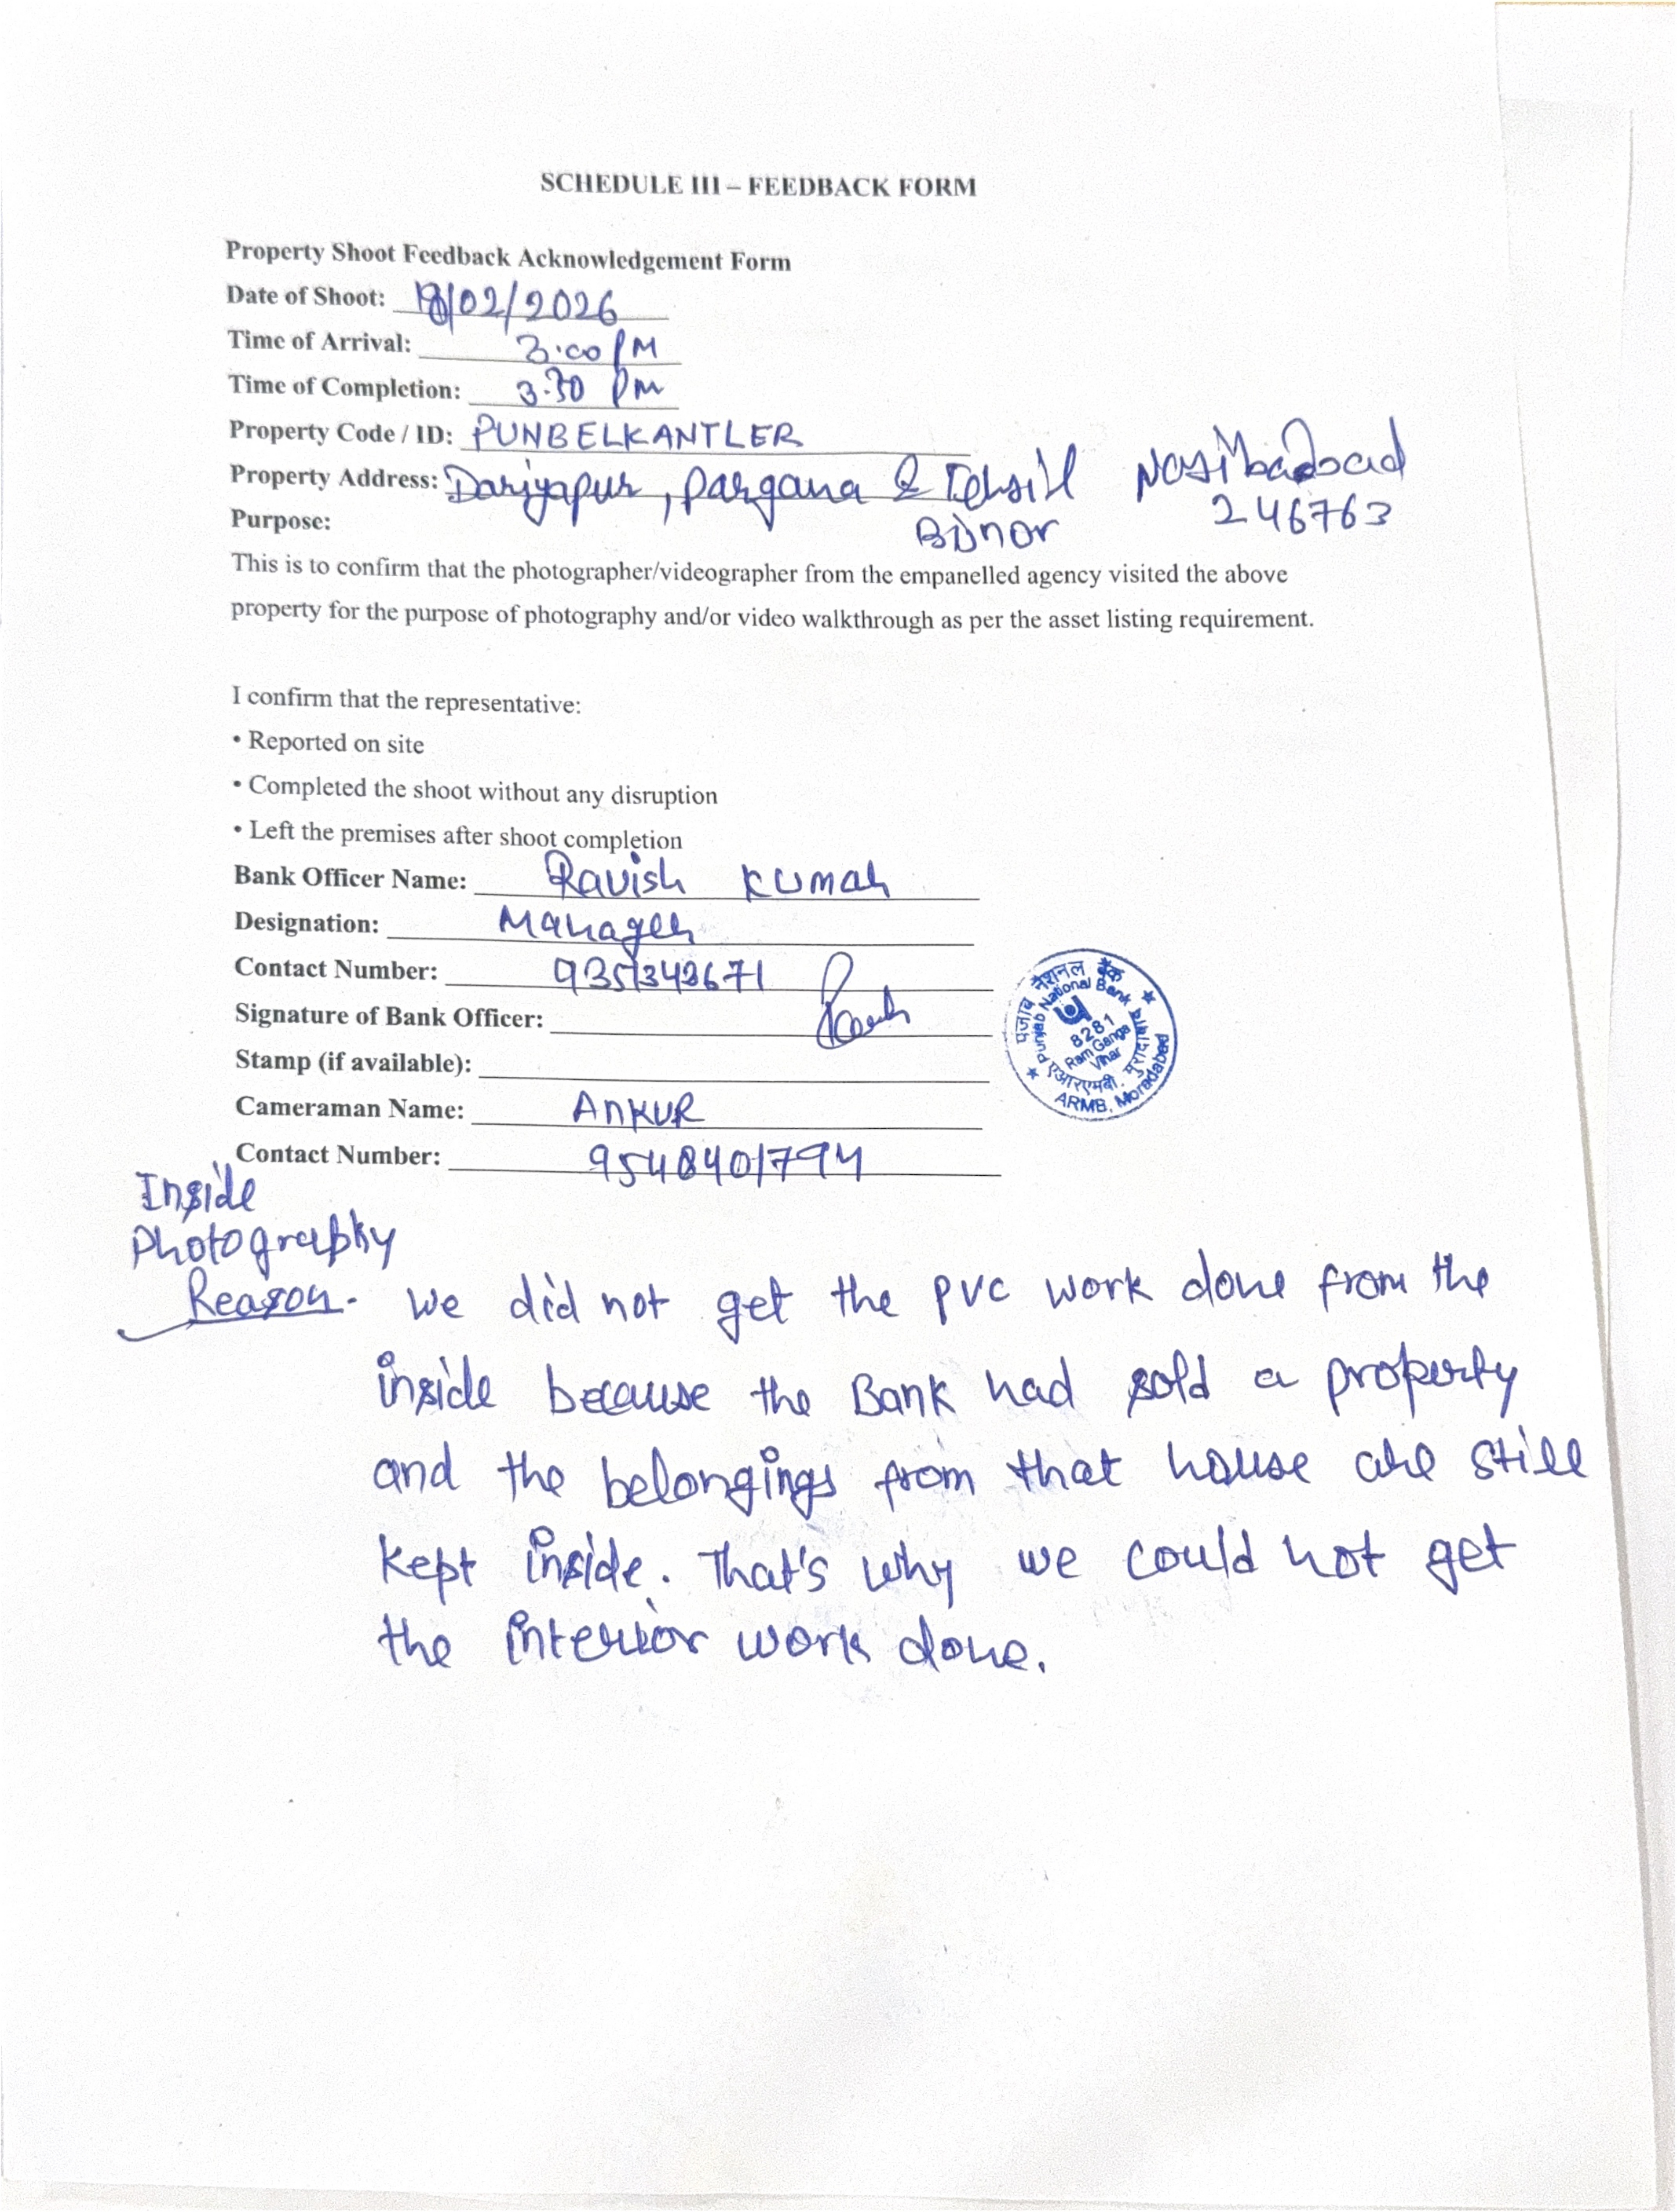 SCHEDULE III – FEEDBACK FORM
Property Shoot Feedback Acknowledgement Form
Date of Shoot: 18/02/2026
Time of Arrival: 3.00 PM
Time of Completion: 3.30 Pm
Property Code / ID: PUNBELKANTLER
Property Address: Dariyapur, Pargana & Tehsil Nasibabad
Purpose: Bijnor 246763
This is to confirm that the photographer/videographer from the empanelled agency visited the above
property for the purpose of photography and/or video walkthrough as per the asset listing requirement.
I confirm that the representative:
• Reported on site
• Completed the shoot without any disruption
• Left the premises after shoot completion
Bank Officer Name: Ravish Kumar
Designation: Manager
Contact Number: 9351343671
Signature of Bank Officer:
Stamp (if available):
पंजाब नैशनल बैंक
Punjab National Bank
8281
Ram Ganga
Vihar
एआरएमबी, मुरादाबाद
ARMB, Moradabad
Cameraman Name: Ankur
Contact Number: 9548401794
Inside
Photography
Reason. We did not get the pvc work done from the
inside because the Bank had sold a property
and the belongings from that house are still
kept inside. That's why we could not get
the interior work done.